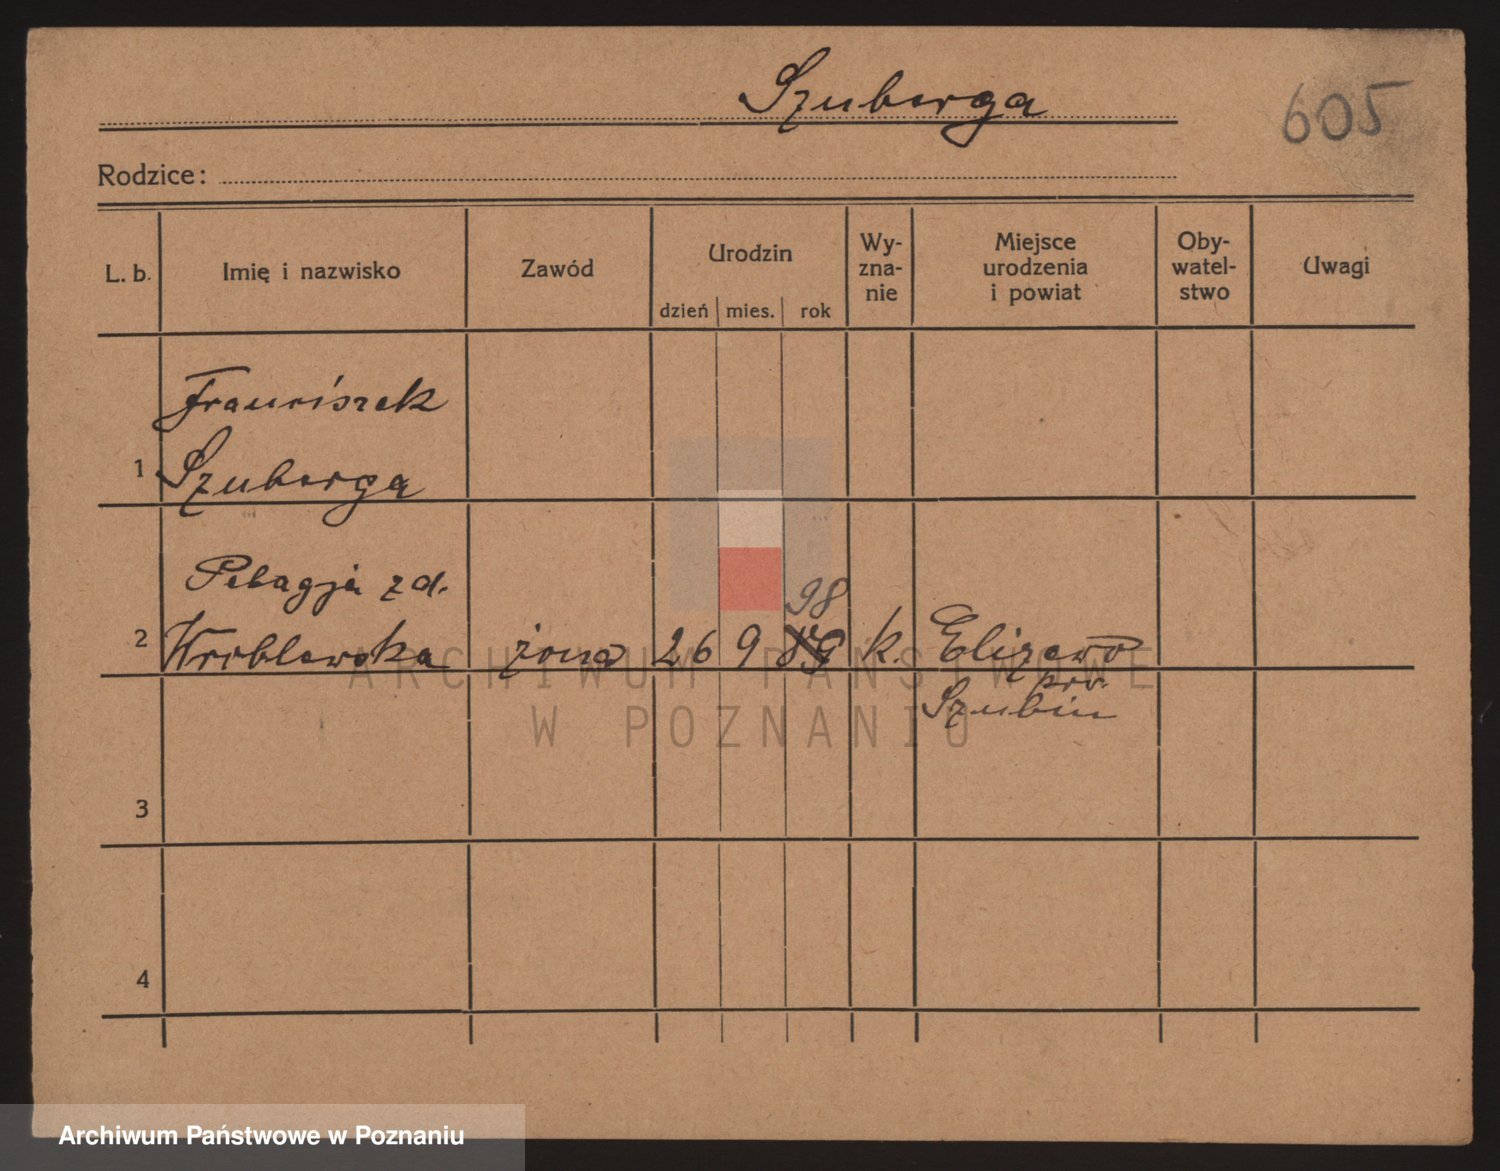 Szuberga
605
Rodzice:
L. b.
Imię i nazwisko
Zawód
Urodzin
dzień
mies.
rok
Wy-
zna-
nie
Miejsce
urodzenia
i powiat
Oby-
watel-
stwo
Uwagi
Franciszek
1 Szuberga
Pelagja z d. 98
2 Wroblewska żona 26 9 89 k. Elizewo
pow.
Szubin
3
4
ARCHIWUM PAŃSTWOWE
W POZNANIU
Archiwum Państwowe w Poznaniu